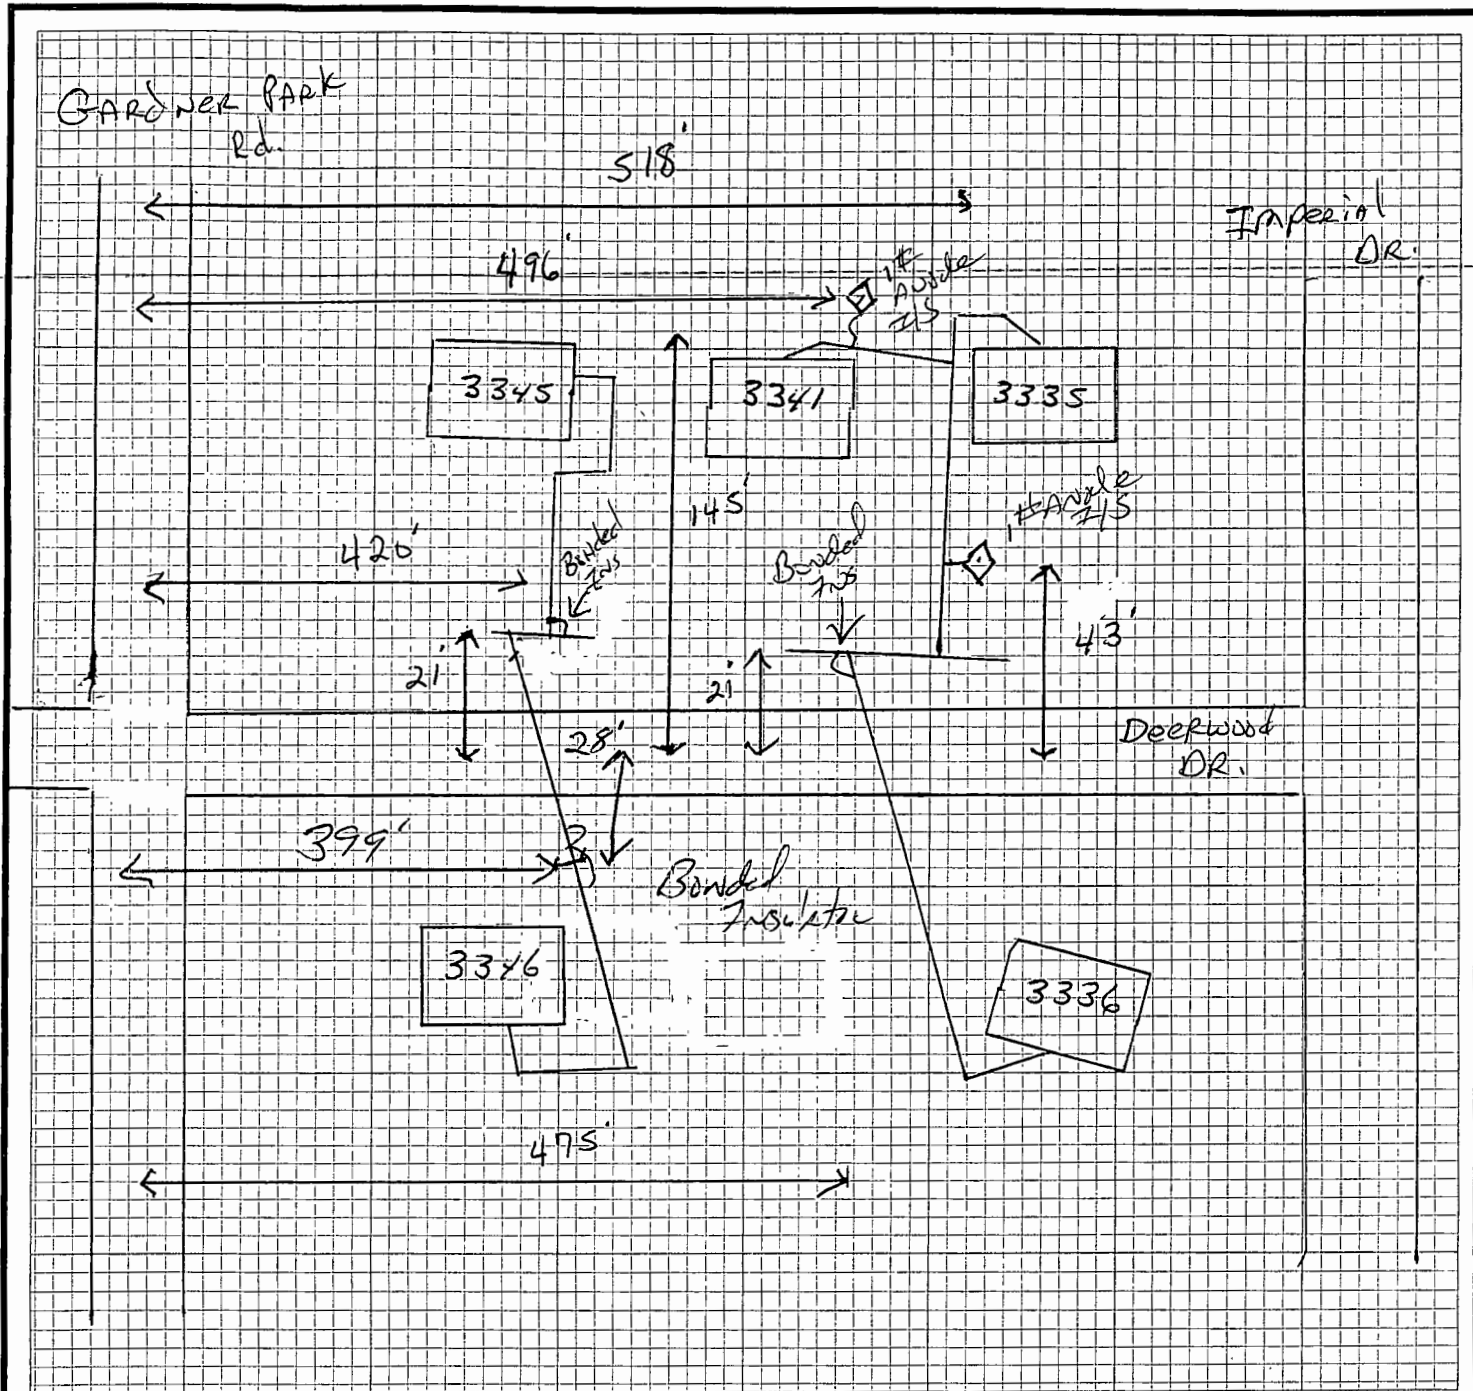 GARdNeR PARK
Rd.
518'
Imperial
DR.
496'
1#
Anode
I/S
3345
3341
3335
145'
1# Anode
I/S
420'
Bonded
Ins
Bonded
Ins
43'
21'
21'
28'
Deerwood
DR.
399'
Bonded
Insulator
3346
3336
475'